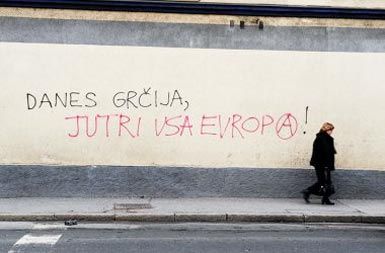 DANES GRČIJA,
JUTRI VSA EVROPA!